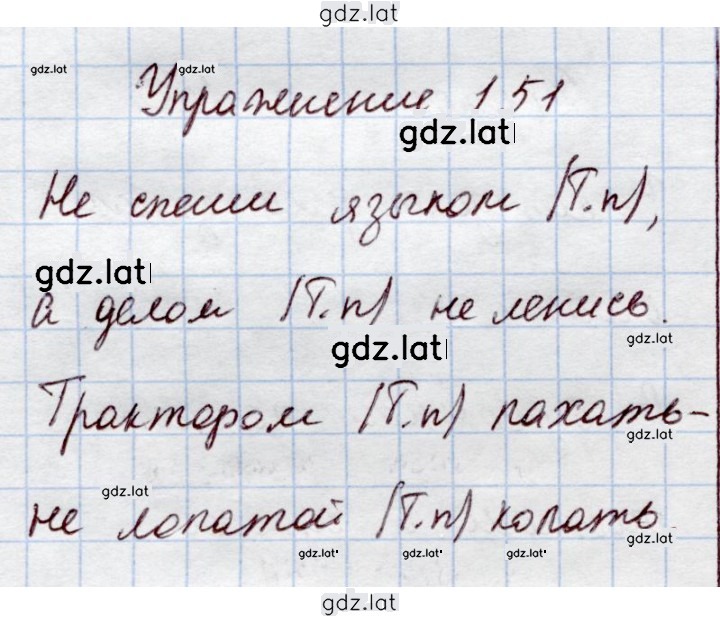 gdz.lat
gdz.lat gdz.lat
Упражнение 151
gdz.lat
Не спеши языком (Т.п),
gdz.lat
а делом (Т.п) не ленись.
gdz.lat
gdz.lat
Трактором (Т.п) пахать -
gdz.lat
gdz.lat
не лопатой (Т.п) копать
gdz.lat
gdz.lat gdz.lat gdz.lat
gdz.lat